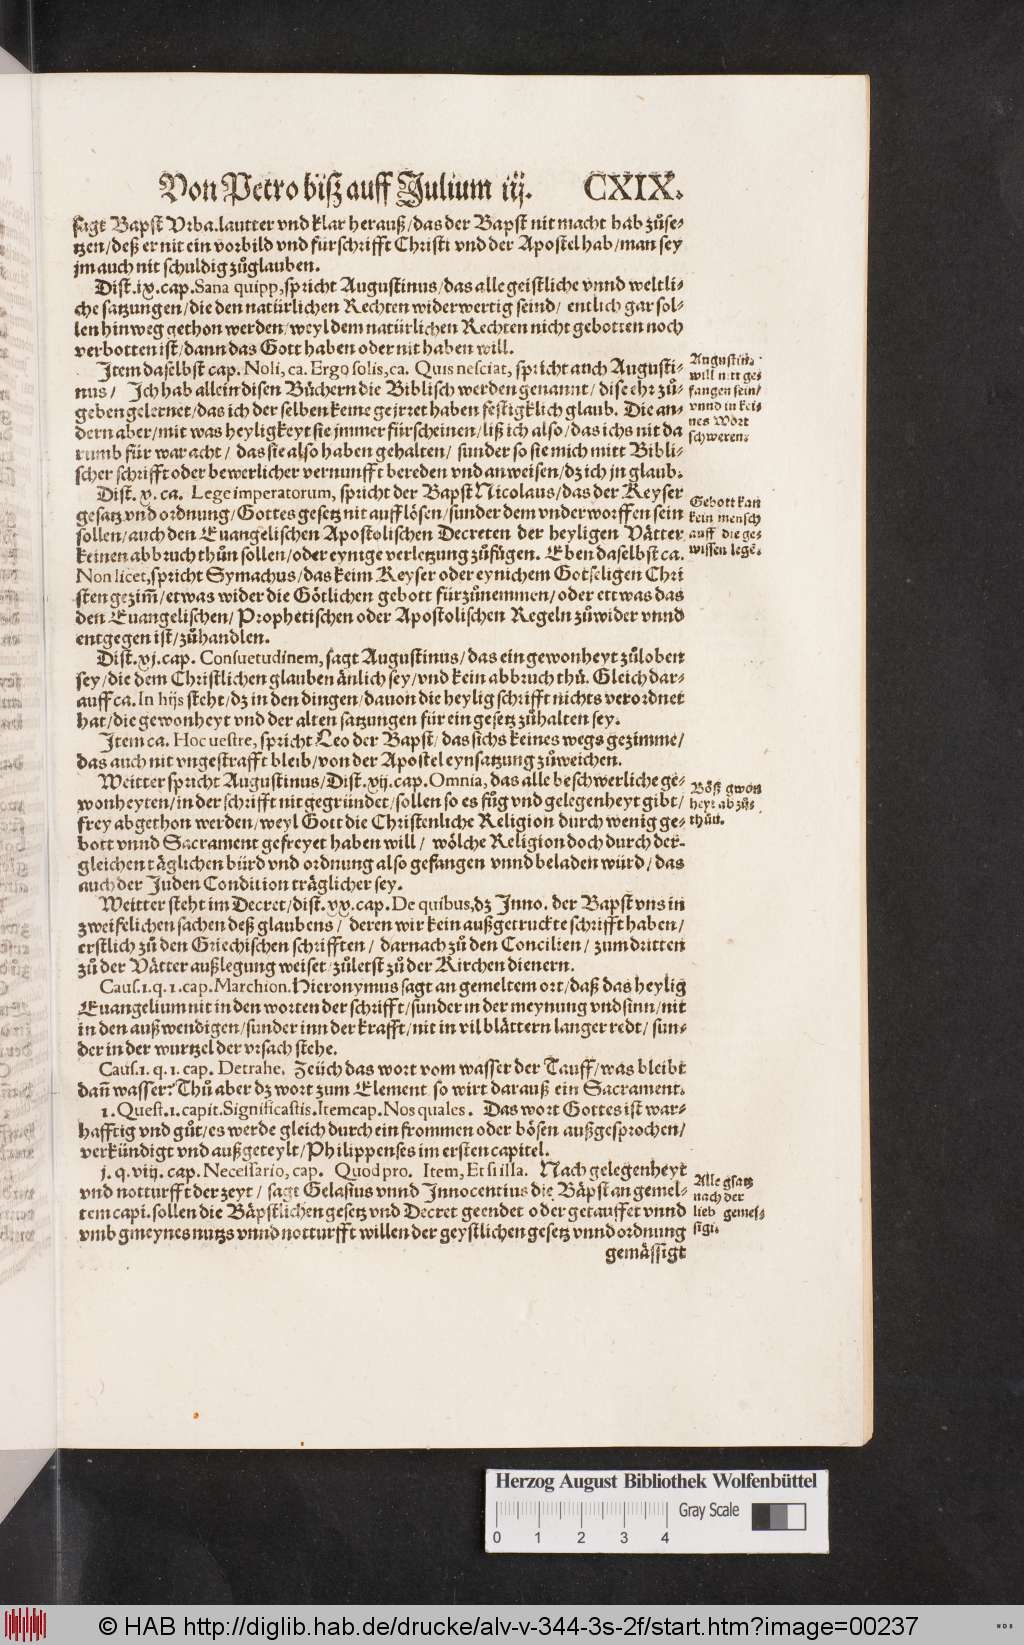 Von Petro biß auff Julium iij. CXIX.
sagt Bapst Vrba. lautter vnd klar herauß/das der Bapst nit macht hab zůse-
tzen/deß er nit ein vorbild vnd fürschrifft Christi vnd der Apostel hab/man sey
jm auch nit schuldig zůglauben.
Dist.ix.cap.Sana quipp,spricht Augustinus/das alle geistliche vnnd weltli-
che satzungen/die den natürlichen Rechten widerwertig seind/ entlich gar sol-
len hinweg gethon werden/weyl dem natürlichen Rechten nicht gebotten noch
verbotten ist/dann das Gott haben oder nit haben will.
Jtem daselbst cap. Noli, ca. Ergo solis,ca. Quis nesciat, spricht auch Augusti-
nus/ Jch hab allein disen Bůchern die Biblisch werden genannt/ dise ehr zů-
geben gelernet/das ich der selben keine geirret haben festigklich glaub. Die an-
dern aber/mit was heyligkeyt sie jmmer fürscheinen/liß ich also/das ichs nit da
rumb für war acht/ das sie also haben gehalten/ sunder so sie mich mitt Bibli-
scher schrifft oder bewerlicher vernunfft bereden vnd anweisen/dz ich jn glaub.
Augustin.
will nitt ge-
fangen sein/
vnnd in kei-
nes Wort
schweren.
Dist. x. ca. Lege imperatorum, spricht der Bapst Nicolaus/das der Keyser
gesatz vnd ordnung/Gottes gesetz nit aufflösen/sunder dem vnderworffen sein
sollen/auch den Euangelischen Apostolischen Decreten der heyligen Vätter
keinen abbruch thůn sollen/oder eynige verletzung zůfügen. Eben daselbst ca.
Non licet,spricht Symachus/das keim Keyser oder eynichem Gotseligen Chri
sten gezim̃/etwas wider die Götlichen gebott fürzůnemmen/oder ettwas das
den Euangelischen/Prophetischen oder Apostolischen Regeln zůwider vnnd
entgegen ist/zůhandlen.
Gebott kan
kein mensch
auff die ge-
wissen legẽ.
Dist.xj.cap. Consuetudinem, sagt Augustinus/das ein gewonheyt zůloben
sey/die dem Christlichen glauben änlich sey/vnd kein abbruch thů. Gleich dar-
auff ca.In hijs steht/dz in den dingen/dauon die heylig schrifft nichts verordnet
hat/die gewonheyt vnd der alten satzungen für ein gesetz zůhalten sey.
Jtem ca. Hoc uestre, spricht Leo der Bapst/das sichs keines wegs gezimme/
das auch nit vngestrafft bleib/von der Apostel eynsatzung zůweichen.
Weitter spricht Augustinus/Dist.xij.cap.Omnia, das alle beschwerliche ge-
wonheyten/in der schrifft nit gegründet/sollen so es fůg vnd gelegenheyt gibt/
frey abgethon werden/weyl Gott die Christenliche Religion durch wenig ge-
bott vnnd Sacrament gefreyet haben will/ wölche Religion doch durch der-
gleichen täglichen bürd vnd ordnung also gefangen vnnd beladen würd/das
auch der Juden Condition träglicher sey.
Böß gwon
heyt abzů-
thůn.
Weitter steht im Decret/dist.xx.cap.De quibus,dz Inno. der Bapst vns in
zweifelichen sachen deß glaubens/ deren wir kein außgetruckte schrifft haben/
erstlich zů den Griechischen schrifften/ darnach zů den Concilien/ zum dritten
zů der Vätter außlegung weiset/zůletst zů der Kirchen dienern.
Caus.1.q.1.cap.Marchion.Hieronymus sagt an gemeltem ort/daß das heylig
Euangelium nit in den worten der schrifft/sunder in der meynung vnd sinn/nit
in den außwendigen/sunder inn der krafft/nit in vil blättern langer redt/sun-
der in der wurtzel der vrsach stehe.
Caus.1. q. 1. cap. Detrahe. Zeüch das wort vom wasser der Tauff/was bleibt
dañ wasser? Thů aber dz wort zum Element so wirt darauß ein Sacrament.
1. Quest.1.capit.Significastis.Item cap. Nos quales. Das wort Gottes ist war-
hafftig vnd gůt/es werde gleich durch ein frommen oder bösen außgesprochen/
verkündigt vnd außgeteylt/Philippenses im ersten capitel.
j. q. viij. cap. Necessario, cap. Quod pro. Item, Et si illa. Nach gelegenheyt
vnd notturfft der zeyt/ sagt Gelasius vnnd Innocentius die Bäpst an gemel-
tem capi.sollen die Bäpstlichen gesetz vnd Decret geendet oder getauffet vnnd
vmb gmeynes nutzs vnnd notturfft willen der geystlichen gesetz vnnd ordnung
gemässigt
Alle gsatz
nach der
lieb gemes-
sigt.
Herzog August Bibliothek Wolfenbüttel
Gray Scale
0 1 2 3 4
© HAB http://diglib.hab.de/drucke/alv-v-344-3s-2f/start.htm?image=00237